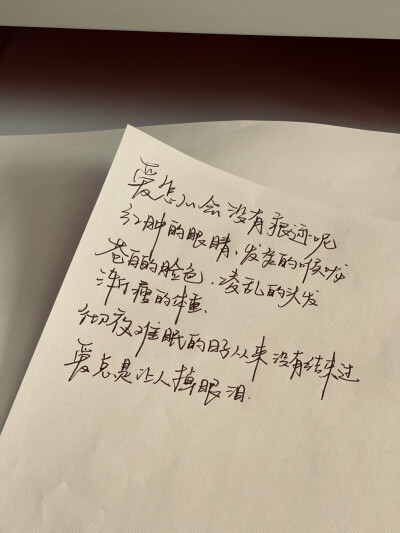 爱怎么会没有痕迹呢
红肿的眼睛、发炎的喉咙
苍白的脸色、凌乱的头发
渐瘦的体重、
彻夜难眠的日子从来没有结束过
爱总是让人掉眼泪.